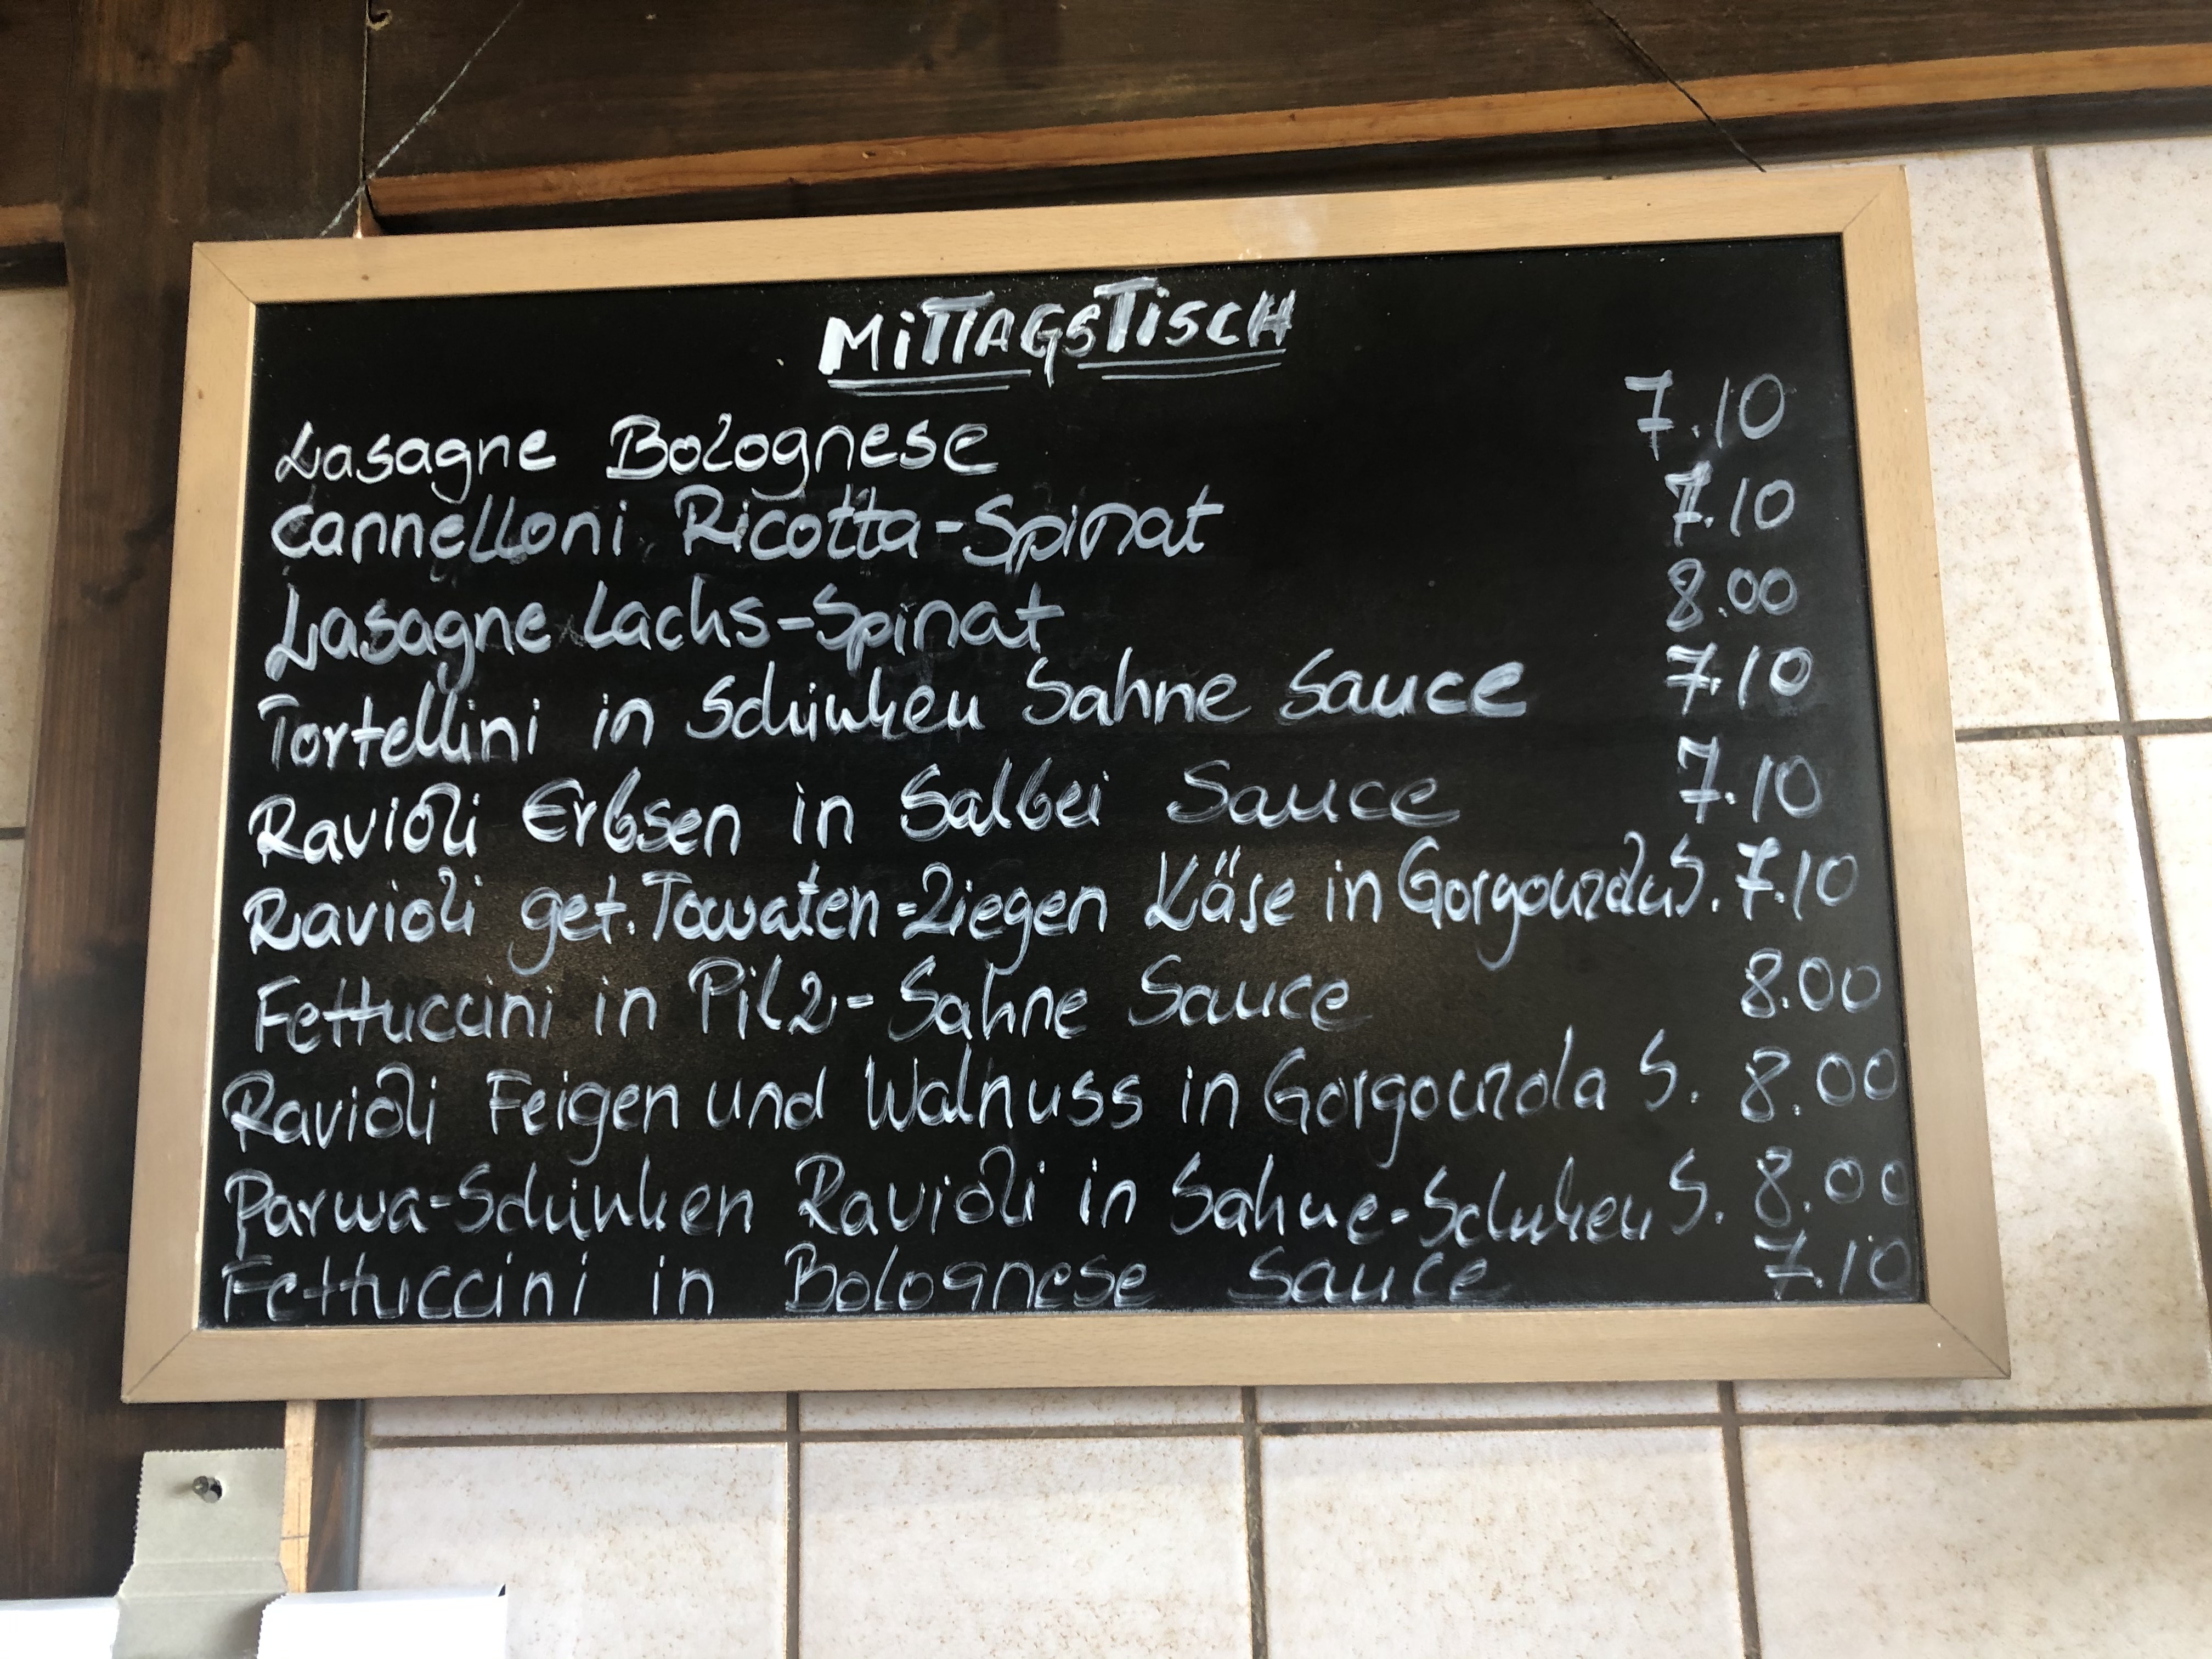 MITTAGSTISCH
Lasagne Bolognese 7.10
Cannelloni Ricotta-Spinat 7.10
Lasagne Lachs-Spinat 8.00
Tortellini in Schinken Sahne Sauce 7.10
Ravioli Erbsen in Salbei Sauce 7.10
Ravioli get. Tomaten-Ziegen Käse in Gorgonzola S. 7.10
Fettuccini in Pilz-Sahne Sauce 8.00
Ravioli Feigen und Walnuss in Gorgonzola S. 8.00
Parma-Schinken Ravioli in Sahne-Schinken S. 8.00
Fettuccini in Bolognese Sauce 7.10